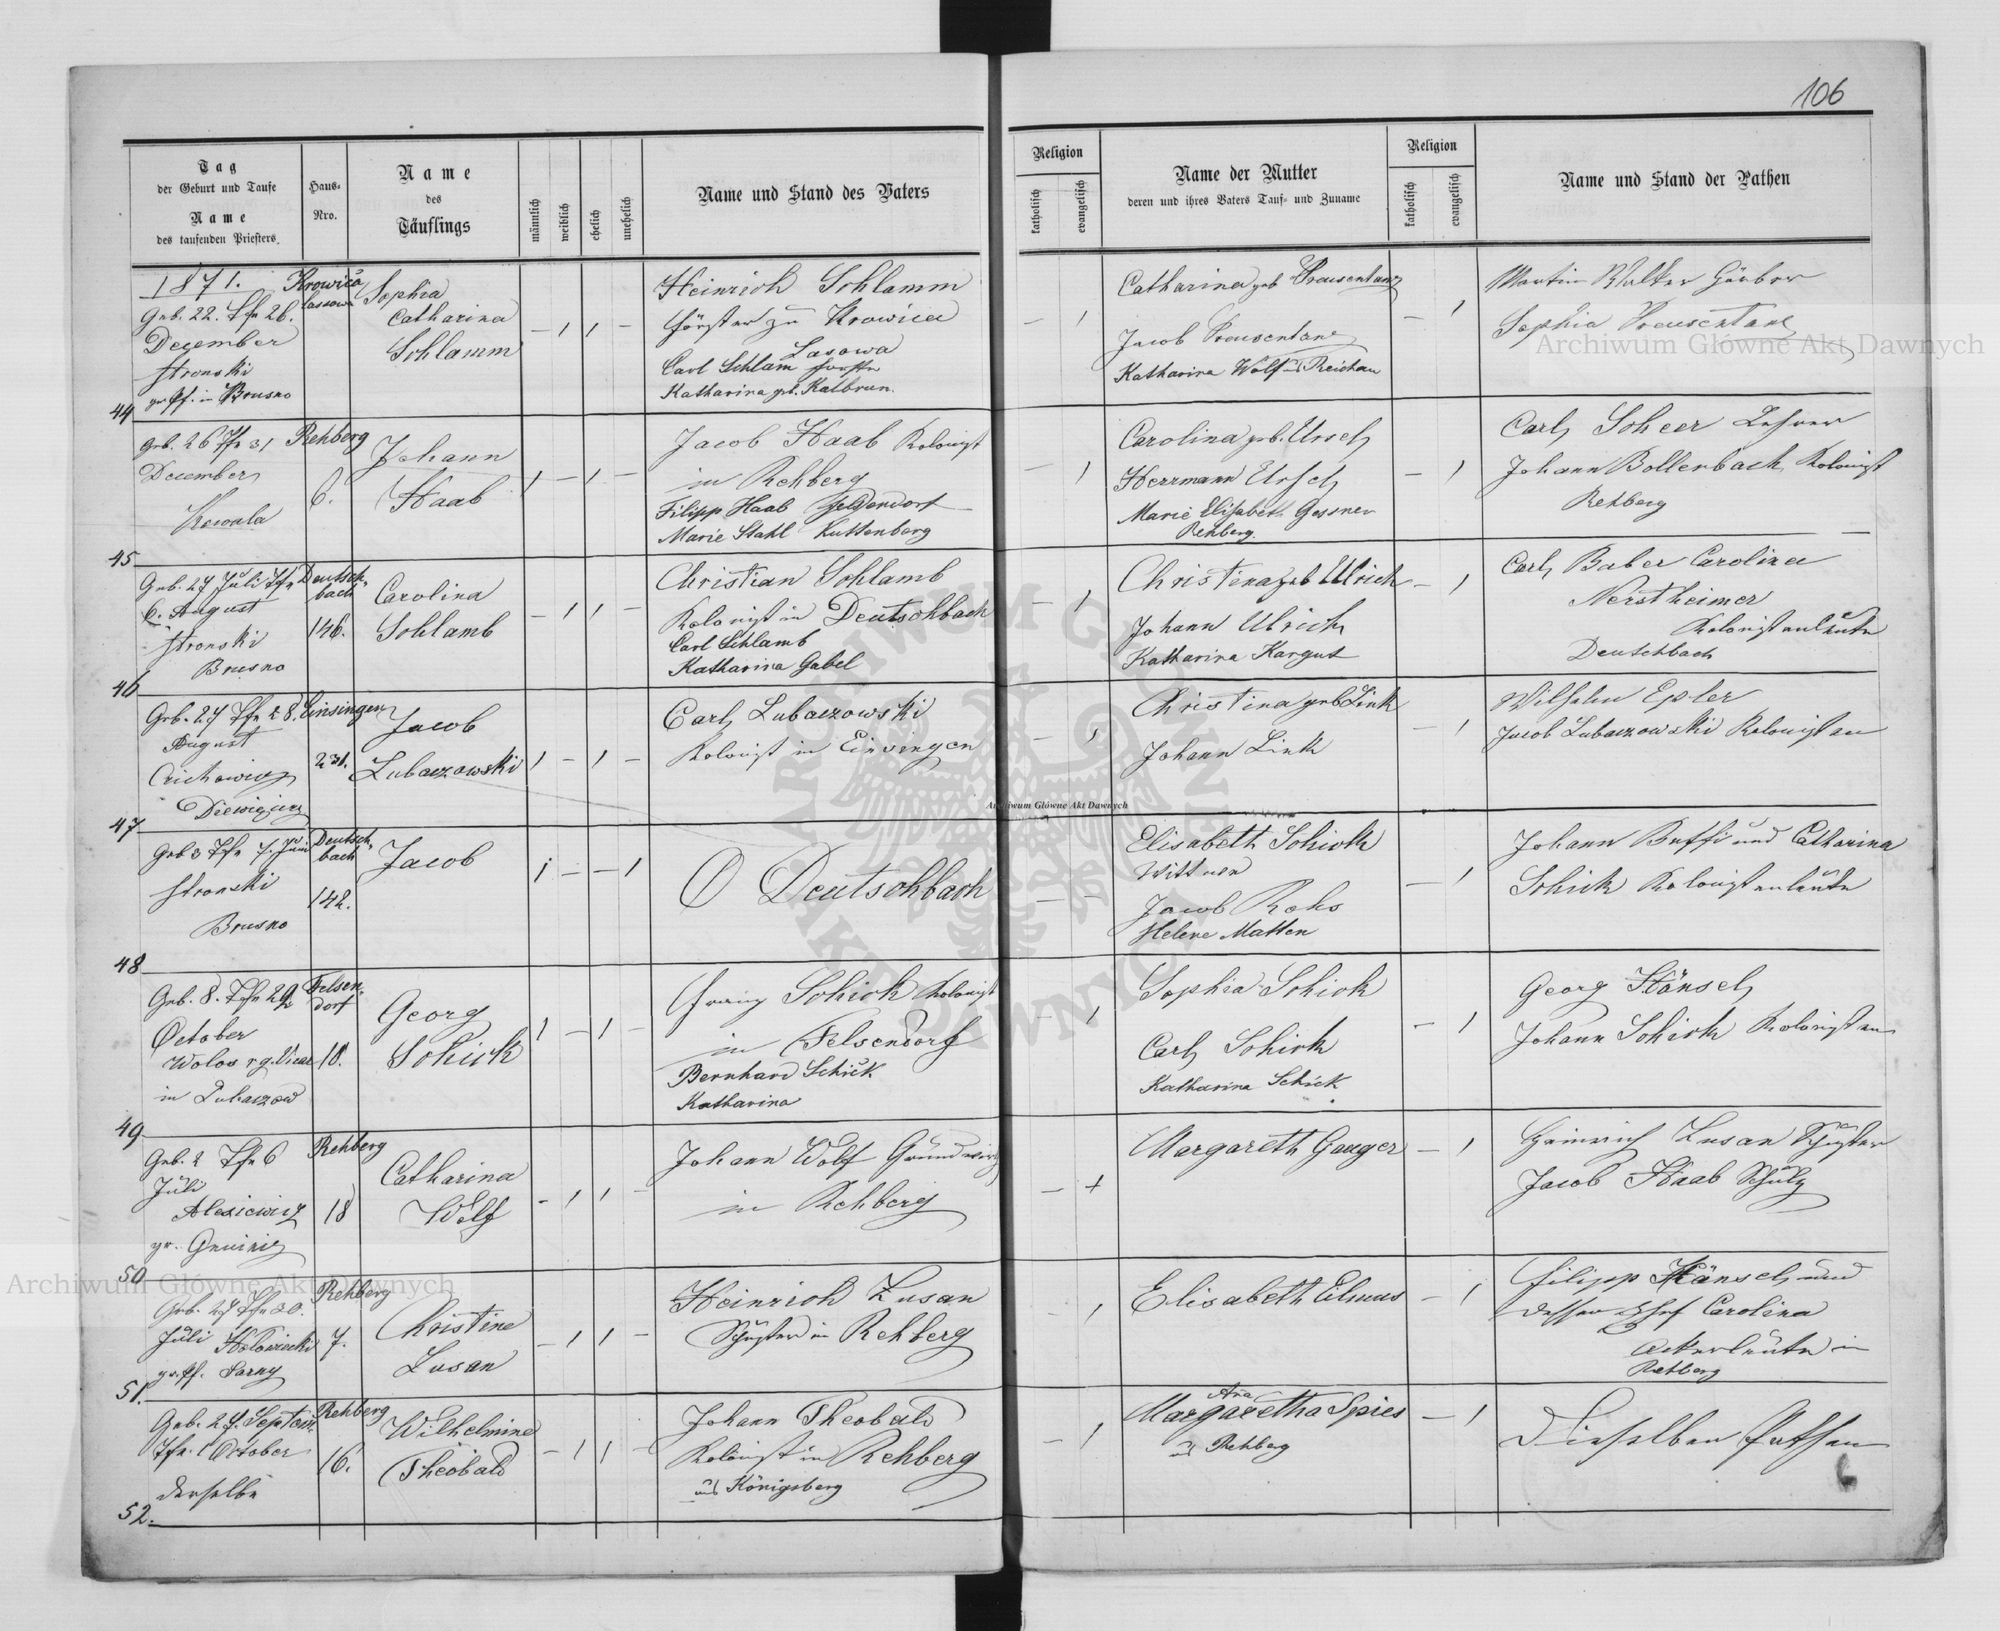 106
Tag
der Geburt und Taufe
Name
des taufenden Priesters.
Haus-
Nro.
Name
des
Täuflings
männlich
weiblich
ehelich
unehelich
Name und Stand des Vaters
Religion
katholisch
evangelisch
Name der Mutter
deren und ihres Vaters Tauf- und Zuname
Religion
katholisch
evangelisch
Name und Stand der Pathen
1871.
Geb. 22. Tfe 26.
December
Stronski
gr. Pf. in Brusno
44
Krowica
Lassowa
Sophia
Catharina
Schlamm
– 1 1 –
Heinrich Schlamm
Förster zu Krowica
Lasowa
Carl Schlam Förster
Katharina geb. Kalbrun.
– 1
Catharina geb Preusentanz
Jacob Preusentanz
Katharina Wolf aus Reichau
– 1
Martin Walter Gärber
Sophia Preusentanz
Geb. 26 Tfe 31
December
Kowala
45
Rehberg
6.
Johann
Haab
1 – 1 –
Jacob Haab Kolonist
in Rehberg
Filipp Haab Felsendorf
Marie Stahl Kuttenberg
– 1
Carolina geb. Ursch
Herrmann Ursch
Marie Elisabeth Gessner
Rehberg.
– 1
Carl Scheer Lehrer
Johann Bollenbach Kolonist
Rehberg
Geb. 27 Juli Tfe
6. August
Stronski
Brusno
46
Deutsch-
bach
146.
Carolina
Schlamb
– 1 1 –
Christian Schlamb
Kolonist in Deutschbach
Carl Schlamb
Katharina Gabel
– 1
Christina geb Ulrich
Johann Ulrich
Katharina Kargut
– 1
Carl Baber Carolina
Nerstheimer
Kolonistenleute
Deutschbach
Geb. 27 Tfe 28.
August
47
Einsingen
231.
Jacob
Lubaczowski
1 – 1 –
Carl Lubaczowski
Kolonist in Einsingen
– 1
Christina geb Link
Johann Link
– 1
Wilhelm Epler
Jacob Lubaczowski Kolonisten
Geb 3 Tfe 7. Juni
Stronski
Brusno
48
Deutsch-
bach
142.
Jacob
1 – – 1
O Deutschbach
– –
Elisabeth Schick
Wittwe
Jacob
Helene Matten
– 1
Johann Buffi und Catharina
Schick Kolonistenleute
Geb. 8. Tfe 29
October
Wolos r. g. Vicar
in Lubaczow
49
Felsen-
dorf
18.
Georg
Schick
1 – 1 –
Franz Schick Kolonist
in Felsendorf
Bernhard Schick
Katharina
– 1
Sophia Schick
Carl Schick
Katharina Schick
– 1
Georg Hänsel
Johann Schick Kolonisten
Geb. 2 Tfe 6
Juli
Alexiewicz
50
Rehberg
18
Catharina
Wolf
– 1 1
Johann Wolf Grundwirth
in Rehberg
– 1
Margareth Gauger
– 1
Heinrich Lusan Schuster
Jacob Haab Schulz
Geb. 27 Tfe 30.
Juli
gr. Pf. Sarny
51.
Rehberg
7.
Christine
Lusan
– 1 1 –
Heinrich Lusan
Schuster in Rehberg
– 1
Elisabeth Elmus
– 1
Filipp Hänsel und
dessen Ehef Carolina
Ackerleute in
Rehberg
Geb. 27. Septem.
Tfe. 1 October
derselbe
52.
Rehberg
16.
Wilhelmine
Theobald
– 1 1 –
Johann Theobald
Kolonist in Rehberg
aus Königsberg
– 1
Ana
Margaretha Spies
aus Rehberg
– 1
Dieselben Pathen
Archiwum Główne Akt Dawnych
Archiwum Główne Akt Dawnych
Archiwum Główne Akt Dawnych
ARCHIWUM GŁÓWNE AKT DAWNYCH